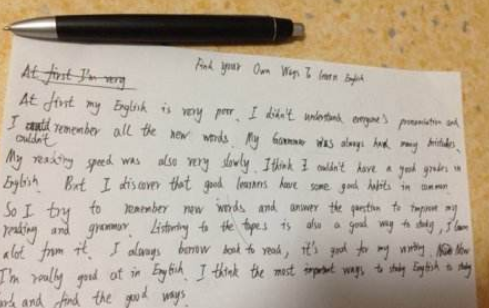 Find your Own Ways To learn English
At first I'm very
At first my English is very poor. I didn't understand everyone's pronunciation and
I could couldn't remember all the new words. My Grammar was always had many mistakes.
My reading speed was also very slowly. I think I couldn't have a good grades in
English. But I discover that good learners have some good habits in common.
So I try to remember new words and answer the question to improve my
reading and grammar. Listening to the tapes is also a good way to study, I learn
alot from it. I always borrow book to read, it's good for my writing. Now
I'm really good at in English. I think the most important ways to study English to study
and find the good ways.